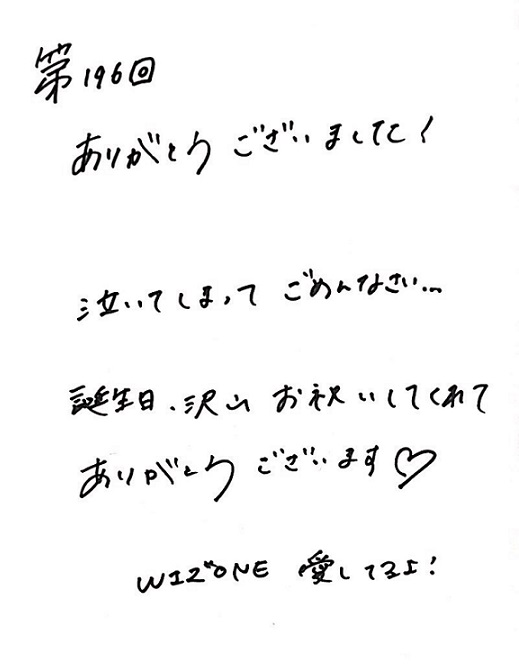 第196回
ありがとう ございました!
泣いてしまって ごめんなさい...
誕生日、沢山 お祝いしてくれて
ありがとう ございます♡
WIZ*ONE 愛してるよ!